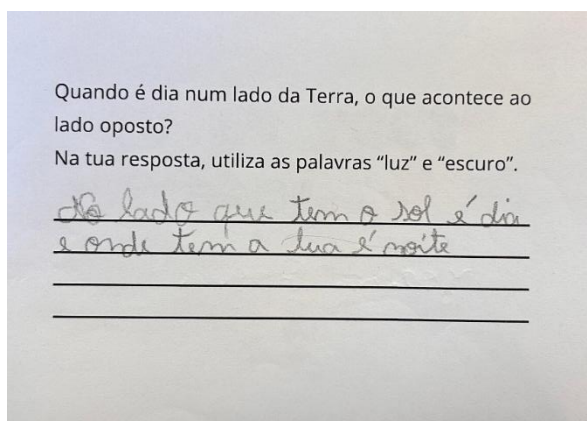 Quando é dia num lado da Terra, o que acontece ao
lado oposto?
Na tua resposta, utiliza as palavras “luz” e “escuro”.
No lado que tem o sol é dia
e onde tem a lua é noite